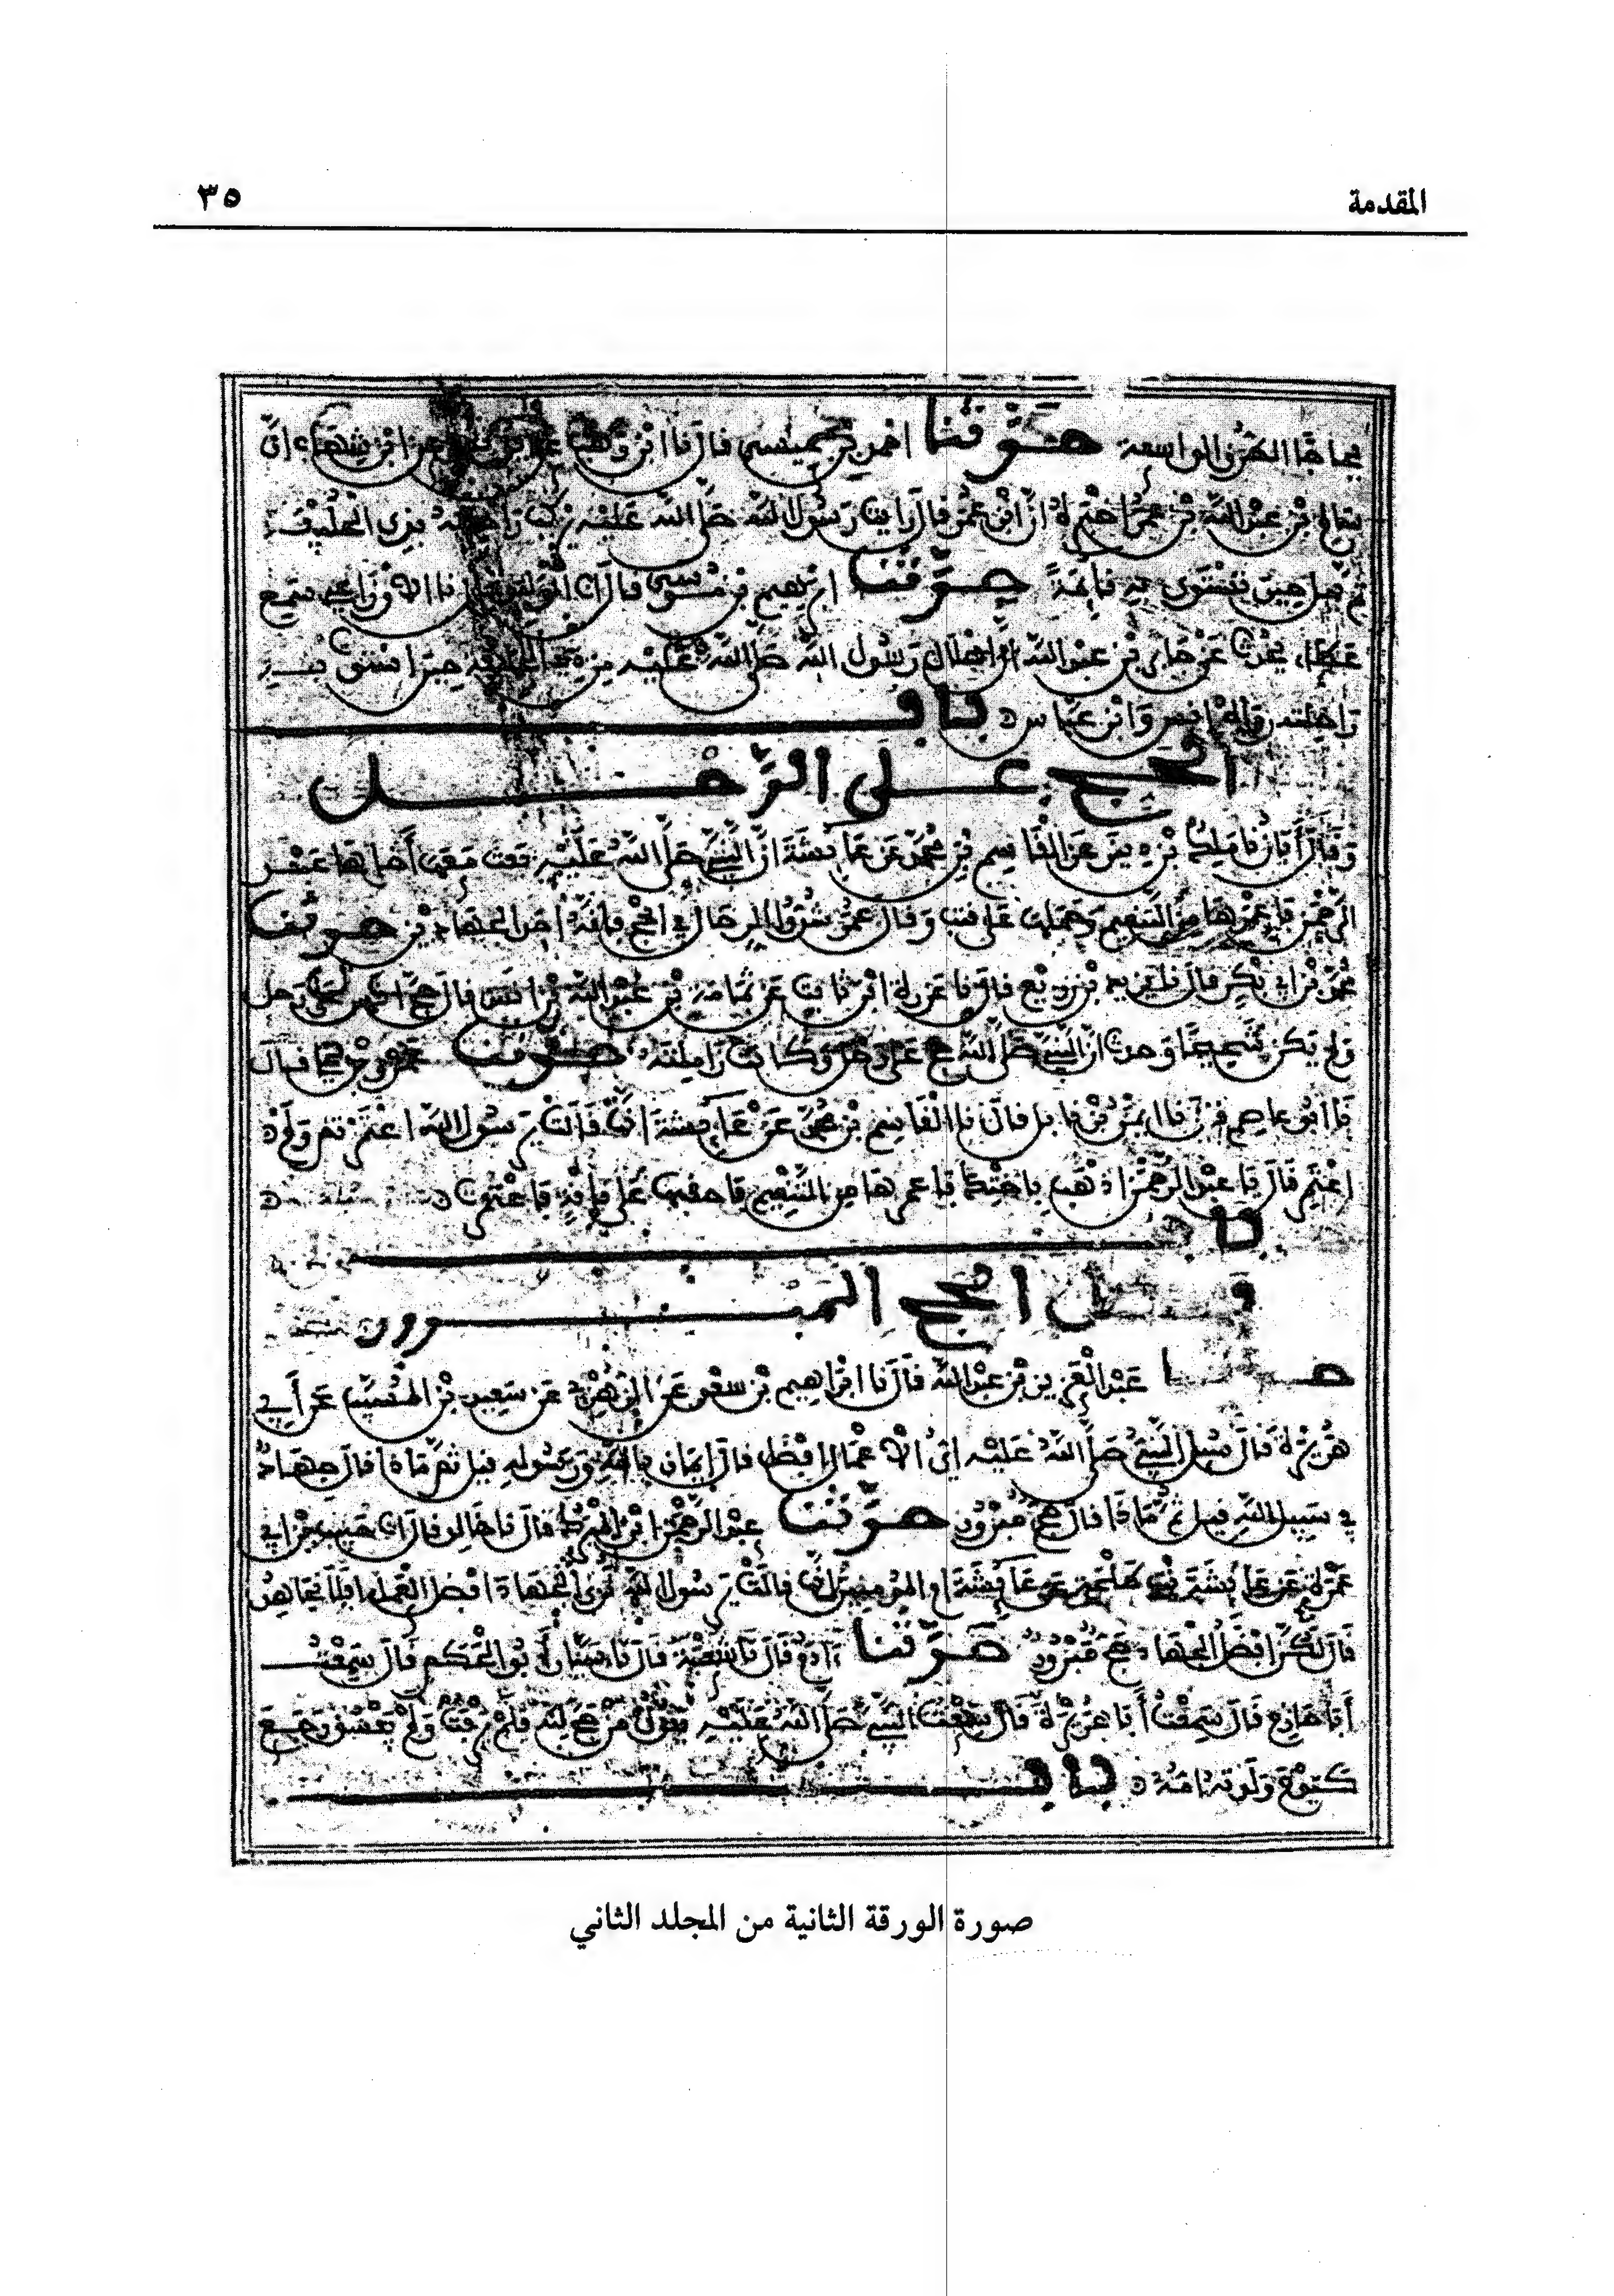 المقدمة ٣٥
فجاجا الطرق الواسعة حدثنا احمد بن عيسى قال نا ابن وهب عن ابن شهاب ان
سالم بن عبد الله بن عمر اخبره ان ابن عمر قال رايت رسول الله صلى الله عليه يركب راحلته بذي الحليفة
ثم يهل حين تستوي به قائمة حدثنا ابرهيم بن موسى قال انا الوليد نا الاوزاعي سمع
عطاء يحدث عن جابر بن عبد الله ان اهلال رسول الله صلى الله عليه من ذي الحليفة حين استوت به
راحلته رواه انس وابن عباس باب
الحج على الرحل
وقال أبان نا ملك بن دينر عن القاسم بن محمد عن عايشة ان النبي صلى الله عليه بعث معها أخاها عبد
الرحمن فاعمرها من التنعيم وحملها على قتب وقال عمر شدوا الرحال في الحج فإنه احد الجهادين حدثنا
محمد بن ابي بكر قال نا يزيد بن زريع قال نا عزرة ابن ثابت عن ثمامة بن عبد الله بن انس قال حج انس على رحل
ولم يكن شحيحا وحدث ان النبي صلى الله حج على رحل وكانت زاملته حدثنا عمرو قال
نا ابو عاصم قال نا ايمن بن نابل قال نا القاسم بن محمد عن عايشة انها قالت يرسول الله اعتمرتم ولم
اعتمر قال يا عبد الرحمن اذهب باختك فاعمرها من التنعيم فاحقبها على ناقة فاعتمرت
باب
فضل الحج المبرور
حدثنا عبد العزيز بن عبد الله قال نا ابراهيم بن سعد عن الزهري عن سعيد بن المسيب عن أبي
هريرة قال سئل النبي صلى الله عليه اي الاعمال افضل قال إيمان بالله ورسوله قيل ثم ماذا قال جهاد
في سبيل الله قيل ثم ماذا قال حج مبرور حدثنا عبد الرحمن ابن المبرك قال نا خالد قال انا حبيب بن ابي
عمرة عن عايشة بنت طلحة عن عايشة ام المومنين انها قالت يرسول الله نرى الجهاد افضل العمل افلا نجاهد
قال لكن افضل الجهاد حج مبرور حدثنا ادم قال نا شعبة قال نا سيار أبو الحكم قال سمعت
أبا حازم قال سمعت أبا هريرة قال سمعت النبي صلى الله عليه يقول من حج لله فلم يرفث ولم يفسق رجع
كيوم ولدته امه باب
صورة الورقة الثانية من المجلد الثاني